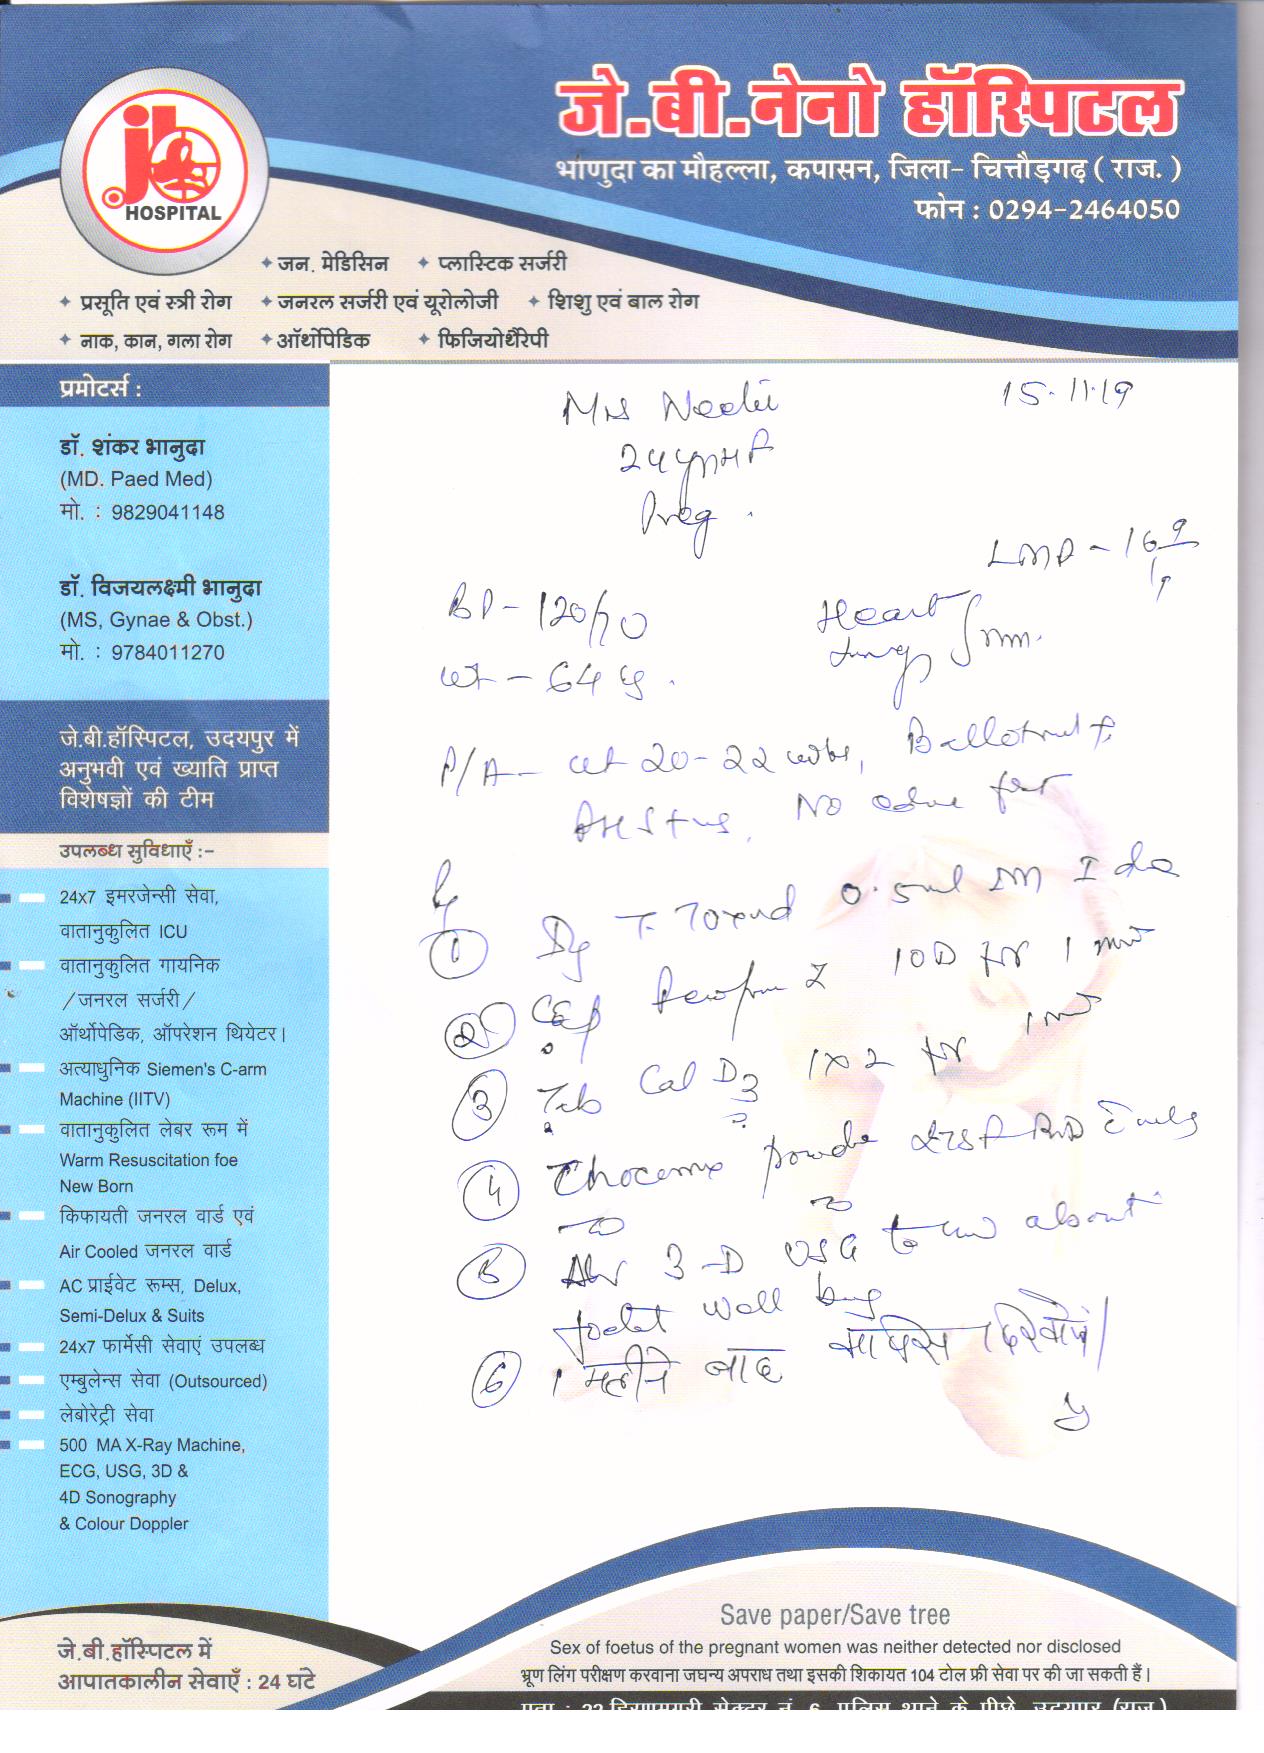 जे.बी.नेनो हॉस्पिटल
भाणुदा का मौहल्ला, कपासन, जिला- चित्तौड़गढ़ ( राज. )
फोन : 0294-2464050
jb
HOSPITAL
जन. मेडिसिन
प्लास्टिक सर्जरी
प्रसूति एवं स्त्री रोग
जनरल सर्जरी एवं यूरोलोजी
शिशु एवं बाल रोग
नाक, कान, गला रोग
ऑर्थोपेडिक
फिजियोथैरेपी
प्रमोटर्स :
डॉ. शंकर भानुदा
(MD. Paed Med)
मो. : 9829041148
डॉ. विजयलक्ष्मी भानुदा
(MS, Gynae & Obst.)
मो. : 9784011270
जे.बी.हॉस्पिटल, उदयपुर में
अनुभवी एवं ख्याति प्राप्त
विशेषज्ञों की टीम
उपलब्ध सुविधाएँ :-
24x7 इमरजेन्सी सेवा,
वातानुकुलित ICU
वातानुकुलित गायनिक
/जनरल सर्जरी/
ऑर्थोपेडिक, ऑपरेशन थियेटर।
अत्याधुनिक Siemen's C-arm
Machine (IITV)
वातानुकुलित लेबर रूम में
Warm Resuscitation foe
New Born
किफायती जनरल वार्ड एवं
Air Cooled जनरल वार्ड
AC प्राईवेट रूम्स, Delux,
Semi-Delux & Suits
24x7 फार्मेसी सेवाएं उपलब्ध
एम्बुलेन्स सेवा (Outsourced)
लेबोरेट्री सेवा
500 MA X-Ray Machine,
ECG, USG, 3D &
4D Sonography
& Colour Doppler
जे.बी.हॉस्पिटल में
आपातकालीन सेवाएँ : 24 घंटे
15.11.19
Mrs
Preg.
LMP - 16
BP - 120/70
Heart
Lungs
wt - 64
P/A - 20-22 wks,
No
1 T. 0.5ml IM I
2 Cap 10D for 1
3 Tab Cal D3 1x2 for 1
4 powder
5 3-D USG about
well being
6 1 महीने बाद वापिस दिखायें।
Save paper/Save tree
Sex of foetus of the pregnant women was neither detected nor disclosed
भ्रूण लिंग परीक्षण करवाना जघन्य अपराध तथा इसकी शिकायत 104 टोल फ्री सेवा पर की जा सकती हैं।
पता : 22 हिरणमगरी सेक्टर नं. 6, पुलिस थाने के पीछे, उदयपुर (राज.)